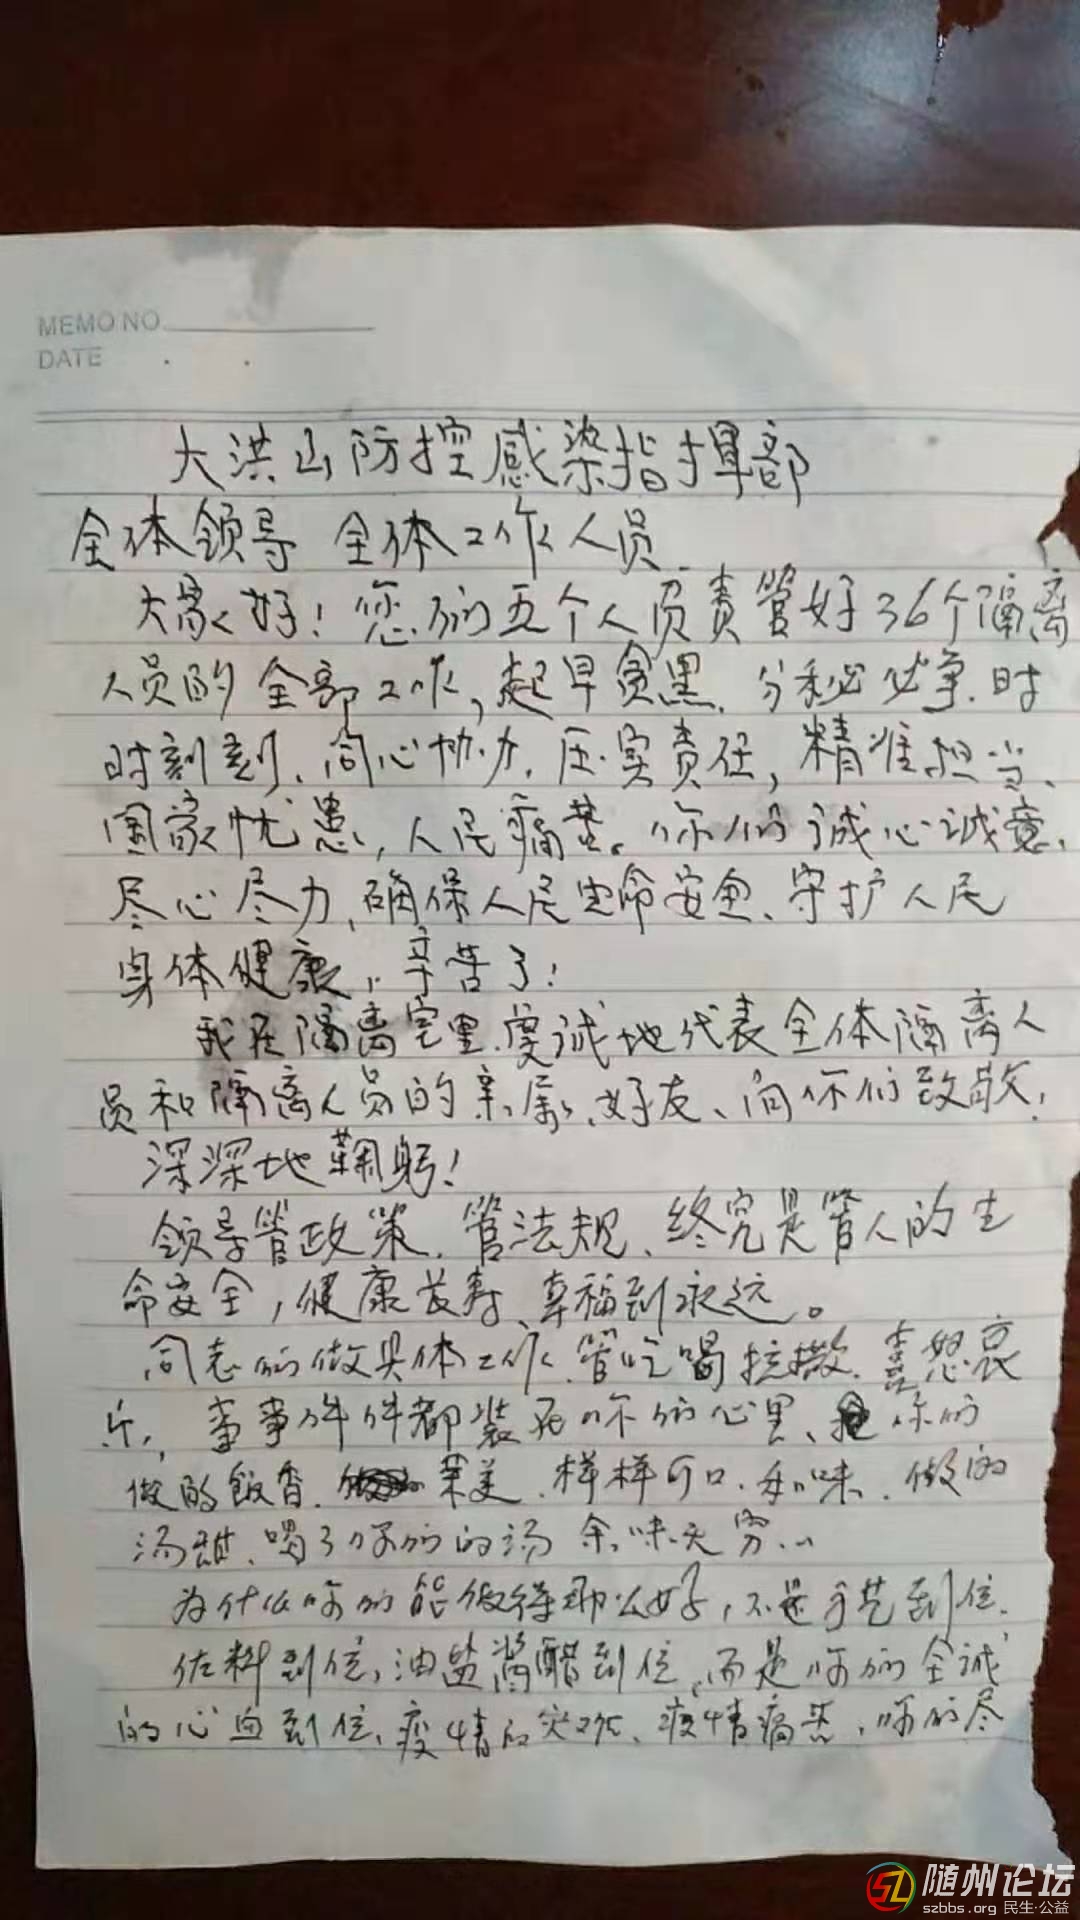 MEMO NO.
DATE . .
大洪山防控感染指挥部
全体领导 全体工作人员
大家好！您们五个人员责管好36个隔离
人员的全部工作，起早贪黑、分秒必争、时
时刻刻、同心协力、压实责任，精准担当、
国家忧患，人民痛苦。你们诚心诚意、
尽心尽力、确保人民生命安全、守护人民
身体健康，辛苦了！
我在隔离室里、虔诚地代表全体隔离人
员和隔离人员的亲属、好友、向你们致敬！
深深地鞠躬！
领导管政策、管法规、终究是管人的生
命安全，健康长寿、幸福到永远。
同志们做具体工作、管吃喝拉撒、喜怒哀
乐，事事件件都装在你们心里、你们
做的饭香、菜美、样样可口、和味、做的
汤甜、喝了你们的汤余味无穷…
为什么你们能做得那么好，不是手艺到位、
佐料到位、油盐酱醋到位、而是你们全诚
的心血到位、疫情的灾难、疫情痛苦，你们尽
随州论坛
szbbs.org 民生·公益